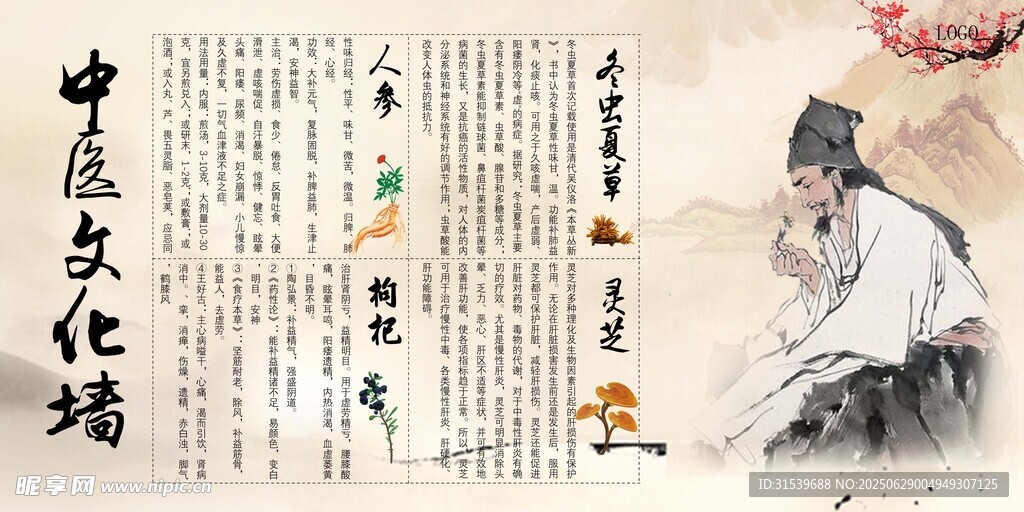 中医文化墙
LOGO
冬虫夏草
冬虫夏草首次记载使用是清代吴仪洛《本草丛新
》，书中认为冬虫夏草性味甘，温。功能补肺益
肾，化痰止咳。可用之于久咳虚喘，产后虚弱、
阳痿阴冷等"虚"的病症。据研究：冬虫夏草主要
含有冬虫夏草素、虫草酸、腺苷和多糖等成分；
冬虫夏草素能抑制链球菌、鼻疽杆菌炭疽杆菌等
病菌的生长，又是抗癌的活性物质，对人体的内
分泌系统和神经系统有好的调节作用，虫草酸能
改变人体虫的抵抗力。
人参
性味归经：性平、味甘、微苦，微温。归脾、肺
经、心经。
功效：大补元气，复脉固脱，补脾益肺，生津止
渴，安神益智。
主治：劳伤虚损、食少、倦怠、反胃吐食、大便
滑泄、虚咳喘促、自汗暴脱、惊悸、健忘、眩晕
头痛、阳痿、尿频、消渴、妇女崩漏、小儿慢惊
及久虚不复，一切气血津液不足之症。
用法用量：内服：煎汤，3-10克，大剂量10-30
克，宜另煎兑入；或研末，1-2克；或敷膏；或
泡酒；或入丸、芦、畏五灵脂、恶皂荚，应忌同
灵芝
灵芝对多种理化及生物因素引起的肝损伤有保护
作用。无论在肝脏损害发生前还是发生后，服用
灵芝都可保护肝脏，减轻肝损伤。灵芝还能促进
肝脏对药物、毒物的代谢，对于中毒性肝炎有确
切的疗效。尤其是慢性肝炎，灵芝可明显消除头
晕、乏力、恶心、肝区不适等症状，并可有效地
改善肝功能，使各项指标趋于正常。所以，灵芝
可用于治疗慢性中毒、各类慢性肝炎、肝硬化、
肝功能障碍。
枸杞
治肝肾阴亏，益精明目。用于虚劳精亏，腰膝酸
痛，眩晕耳鸣，阳痿遗精，内热消渴，血虚萎黄
，目昏不明。
①陶弘景：补益精气，强盛阴道。
②《药性论》：能补益精诸不足，易颜色，变白
，明目，安神
③《食疗本草》：坚筋耐老，除风，补益筋骨，
能益人，去虚劳。
④王好古：主心病嗌干，心痛，渴而引饮，肾病
消中。、挛，消瘅，伤燥，遗精，赤白浊，脚气
，鹤膝风
昵享网 www.nipic.cn
ID:31539688 NO:20250629004949307125